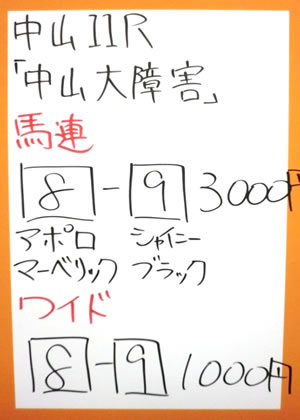 中山11R
「中山大障害」
馬連
8-9 3000円
アポロ シャイニー
マーベリック ブラック
ワイド
8-9 1000円